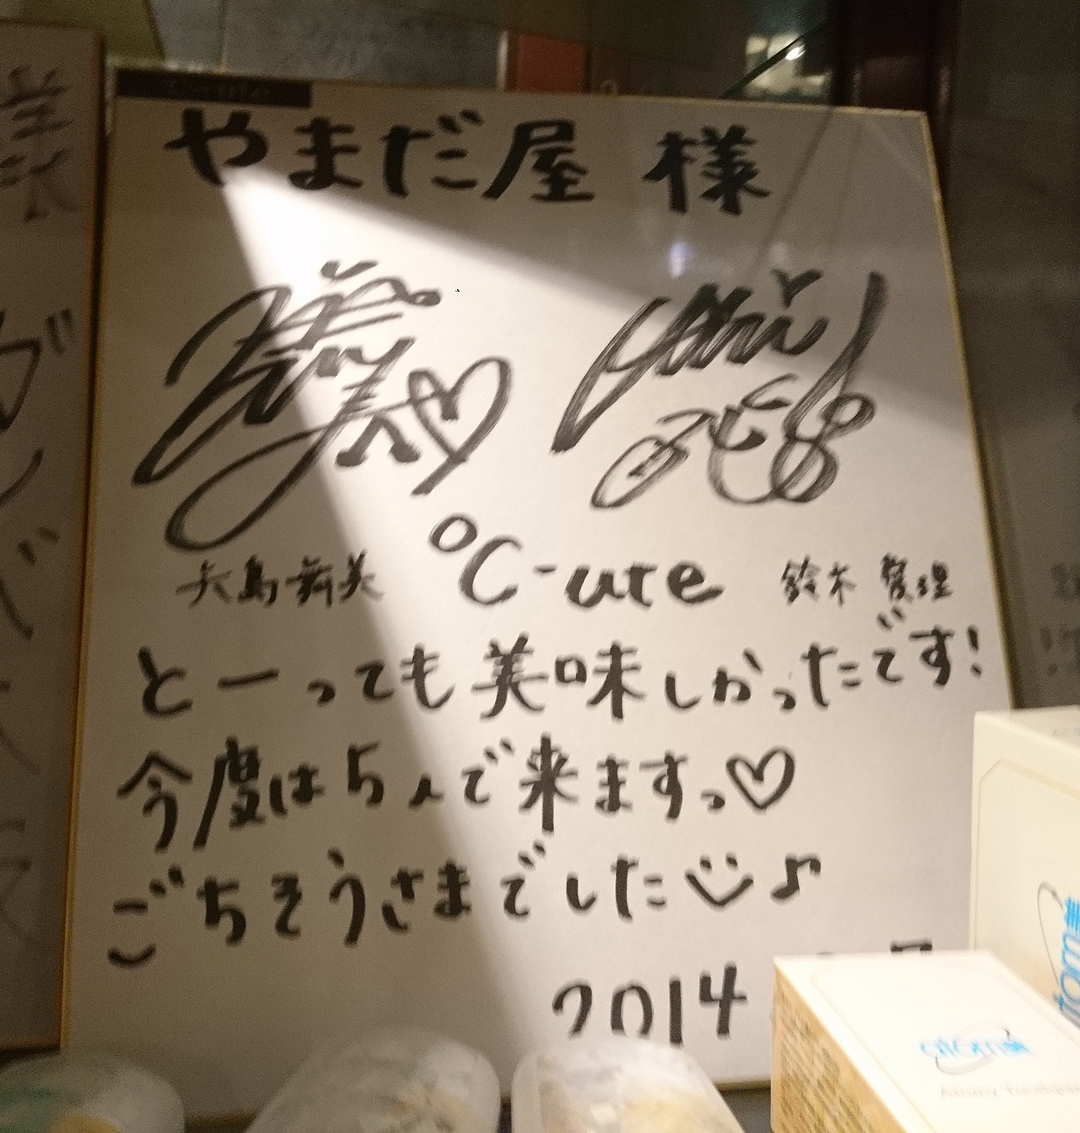 やまだ屋 様
℃-ute
矢島舞美
鈴木愛理
とーっても美味しかったです!
今度は5人で来ますっ♡
ごちそうさまでした
2014
atom美